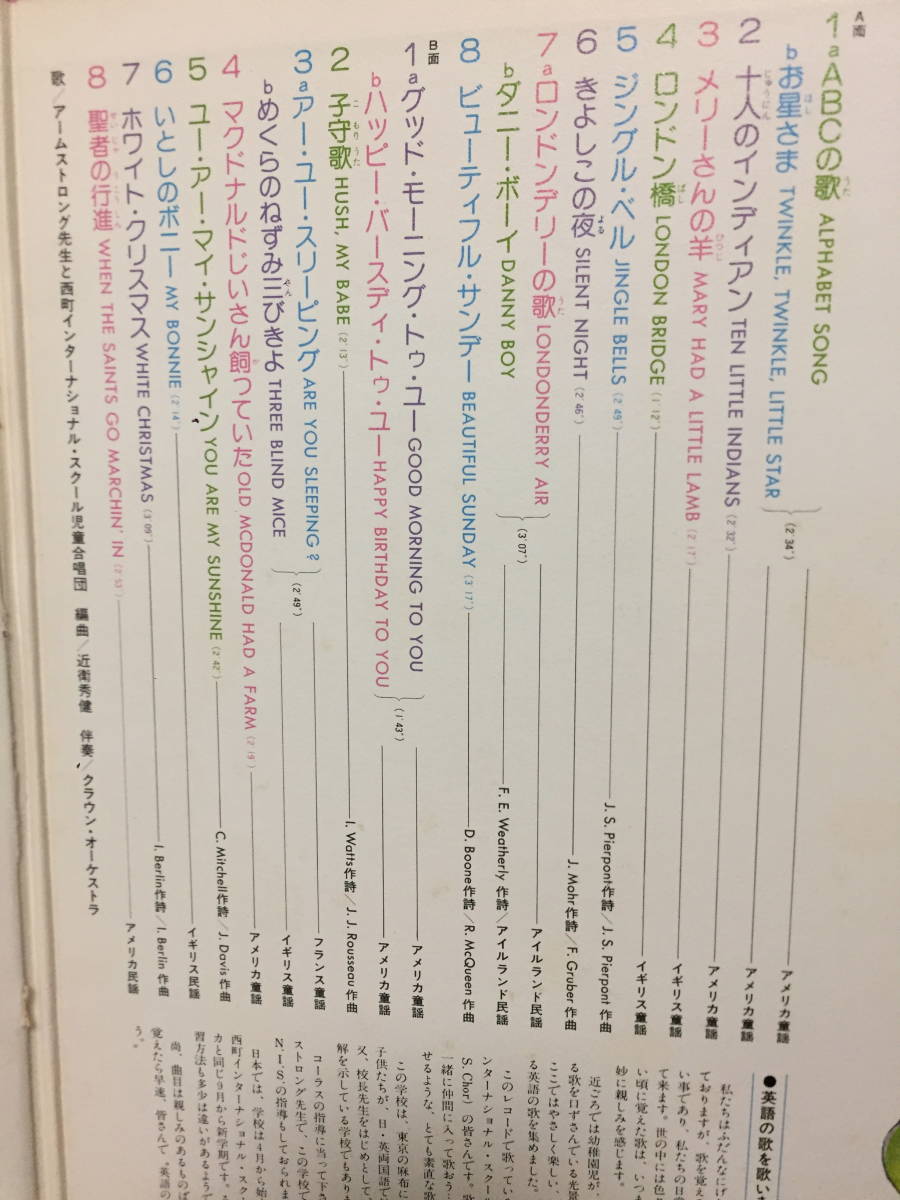 A面
1a ABCの歌 ALPHABET SONG
b お星さま TWINKLE, TWINKLE, LITTLE STAR (2′34″) アメリカ童謡
2 十人のインディアン TEN LITTLE INDIANS (2′32″) アメリカ童謡
3 メリーさんの羊 MARY HAD A LITTLE LAMB (2′17″) アメリカ童謡
4 ロンドン橋 LONDON BRIDGE (1′12″) イギリス童謡
イギリス童謡
5 ジングル・ベル JINGLE BELLS (2′49″) J. S. Pierpont作詩/J. S. Pierpont 作曲
6 きよしこの夜 SILENT NIGHT (2′46″) J. Mohr作詩/F. Gruber 作曲
7a ロンドンデリーの歌 LONDONDERRY AIR アイルランド民謡
b ダニー・ボーイ DANNY BOY (3′07″) F. E. Weatherly 作詩/アイルランド民謡
8 ビューティフル・サンデー BEAUTIFUL SUNDAY (3′17″) D. Boone作詩/R. McQueen 作曲
B面
1a グッド・モーニング・トゥ・ユー GOOD MORNING TO YOU アメリカ童謡
b ハッピー・バースディ・トゥ・ユー HAPPY BIRTHDAY TO YOU (1′43″) アメリカ童謡
2 子守歌 HUSH, MY BABE (2′13″) I. Watts作詩/J. J. Rousseau 作曲
3a アー・ユー・スリーピング ARE YOU SLEEPING? フランス童謡
b めくらのねずみ三びきよ THREE BLIND MICE (2′49″) イギリス童謡
4 マクドナルドじいさん飼っていた OLD MCDONALD HAD A FARM (2′19″) アメリカ童謡
5 ユー・アー・マイ・サンシャイン YOU ARE MY SUNSHINE (2′42″) C. Mitchell作詩/J. Davis 作曲
6 いとしのボニー MY BONNIE (2′14″) イギリス民謡
7 ホワイト・クリスマス WHITE CHRISTMAS (3′09″) I. Berlin作詩/I. Berlin 作曲
8 聖者の行進 WHEN THE SAINTS GO MARCHIN' IN (2′53″) アメリカ民謡
歌/アームストロング先生と西町インターナショナル・スクール児童合唱団 編曲/近衛秀健 伴奏/クラウン・オーケストラ
●英語の歌を歌い
私たちはふだんなにげ
ておりますが、歌を覚え
い事であり、私たちの日
て来ます。世の中には色
い頃に覚えた歌は、いつ
妙に親しみを感じます。
近ごろでは幼稚園児が、
る歌を口ずさんでいる光景
ここではやさしく楽しい、
る英語の歌を集めました。
このレコードで歌ってい
ンターナショナル・スクー
S. Chor）の皆さんです。歌
一緒に仲間に入って歌おう…
せるような、とても素直な歌
この学校は、東京の麻布に
子供たちが、日・英両国語で
又、校長先生をはじめとして
解を示している学校でもあり
コーラスの指導に当って下さ
ストロング先生で、この学校で
N.I.S.の指導もしておられま
日本では、学校は4月から始
西町インターナショナル・スク
カと同じ9月から新学期です。
習方法も多少は違いがあるよう
尚、曲目は親しみのあるものば
覚えたら早速、皆さんで、英語の
う。